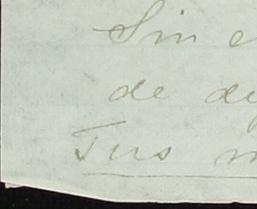 Sin e
de de
Tus m